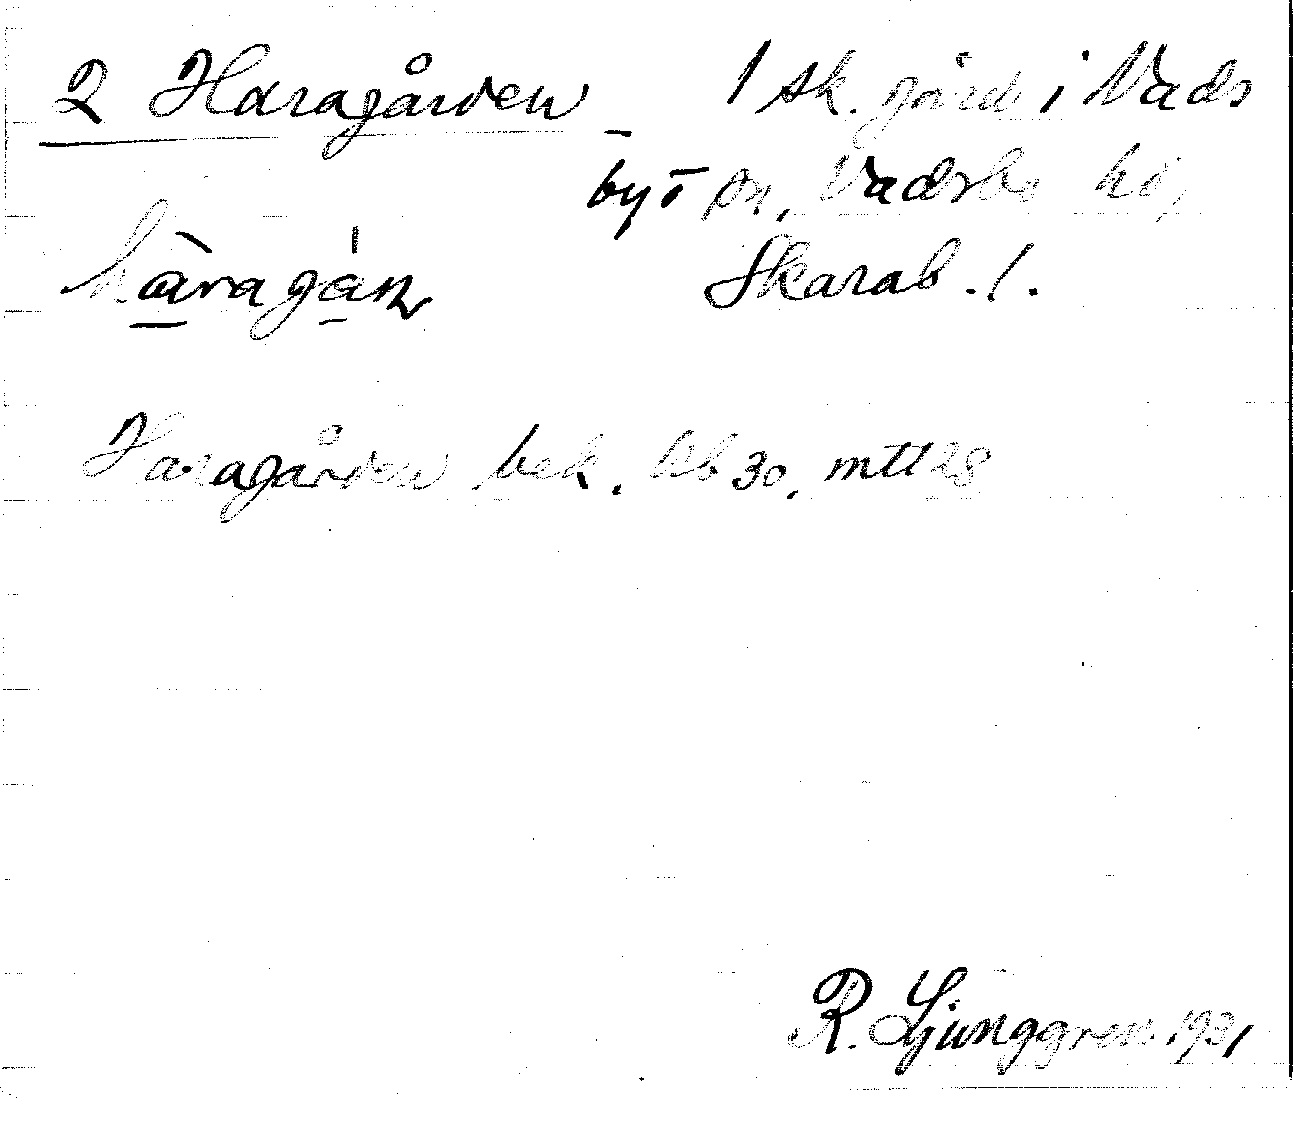 2 Haragården 1 sk. gård i Vads
by o sn, Vadsbo hd,
hàragán Skarab. l.
Haragården bek. kb 30, mtl 28
R. Ljunggren 1931